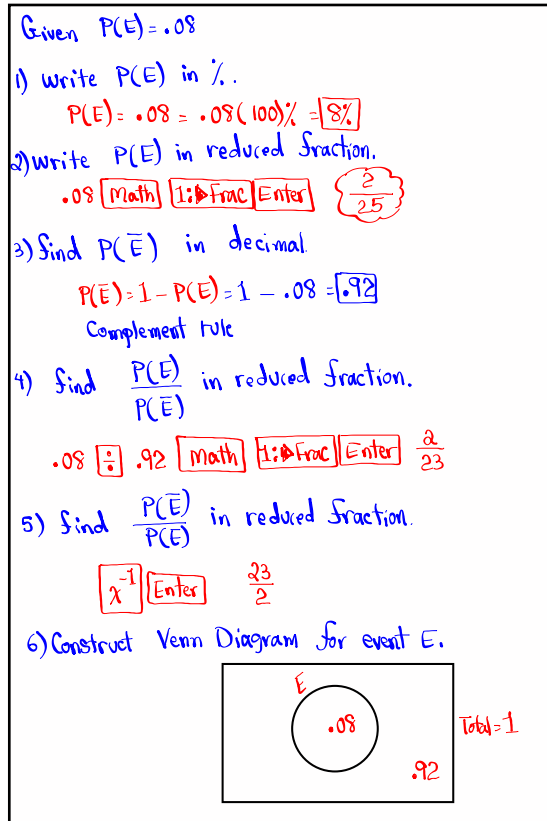 Given P(E) = .08
1) write P(E) in %.
P(E) = .08 = .08(100)% = 8%
2) write P(E) in reduced fraction.
.08 Math 1:▶Frac Enter 2/25
3) find P(Ē) in decimal.
P(Ē) = 1 – P(E) = 1 – .08 = .92
Complement rule
4) find P(E)/P(Ē) in reduced fraction.
.08 ÷ .92 Math 1:▶Frac Enter 2/23
5) find P(Ē)/P(E) in reduced fraction.
x⁻¹ Enter 23/2
6) Construct Venn Diagram for event E.
E
.08
Total = 1
.92